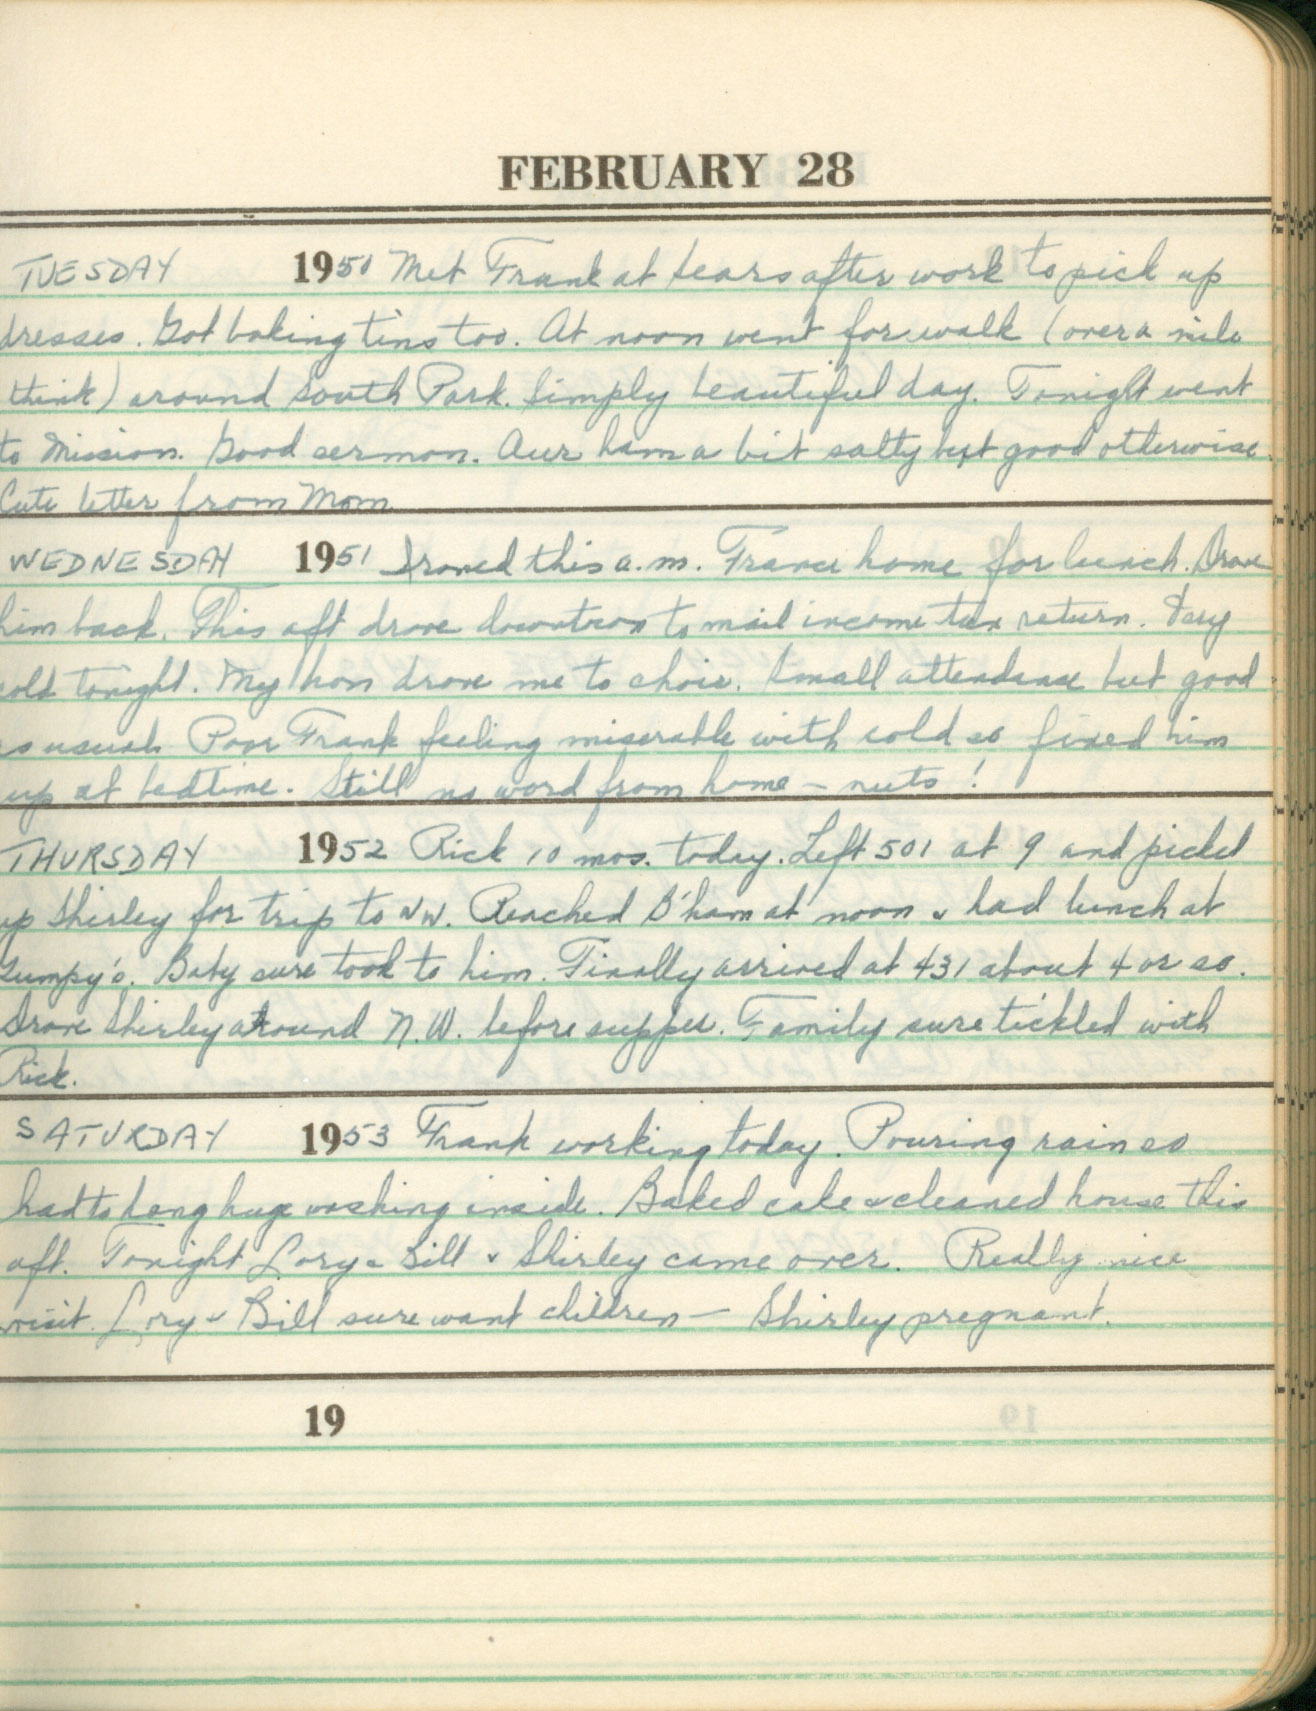 FEBRUARY 28
TUESDAY 1950 Met Frank at Sears after work to pick up
dresses. Got baking tins too. At noon went for walk (over a mile
think) around South Park. Simply beautiful day. Tonight went
to Mission. Good sermon. Our ham a bit salty but good otherwise.
Cute letter from Mom
WEDNESDAY 1951 Ironed this a.m. France home for lunch. Drove
him back. This aft drove downtown to mail income tax return. Very
cold tonight. My hon drove me to choir. Small attendance but good
as usual. Poor Frank feeling miserable with cold so fixed him
up at bedtime. Still no word from home – nuts!
THURSDAY 1952 Rick 10 mos. today. Left 501 at 9 and picked
up Shirley for trip to NW. Reached B'ham at noon & had lunch at
Gumpy's. Baby sure took to him. Finally arrived at 431 about 4 or so.
Drove Shirley around N.W. before supper. Family sure tickled with
Rick.
SATURDAY 1953 Frank working today. Pouring rain so
had to hang huge washing inside. Baked cake & cleaned house this
aft. Tonight Lory & Bill & Shirley came over. Really nice
visit. Lory & Bill sure want children – Shirley pregnant.
19